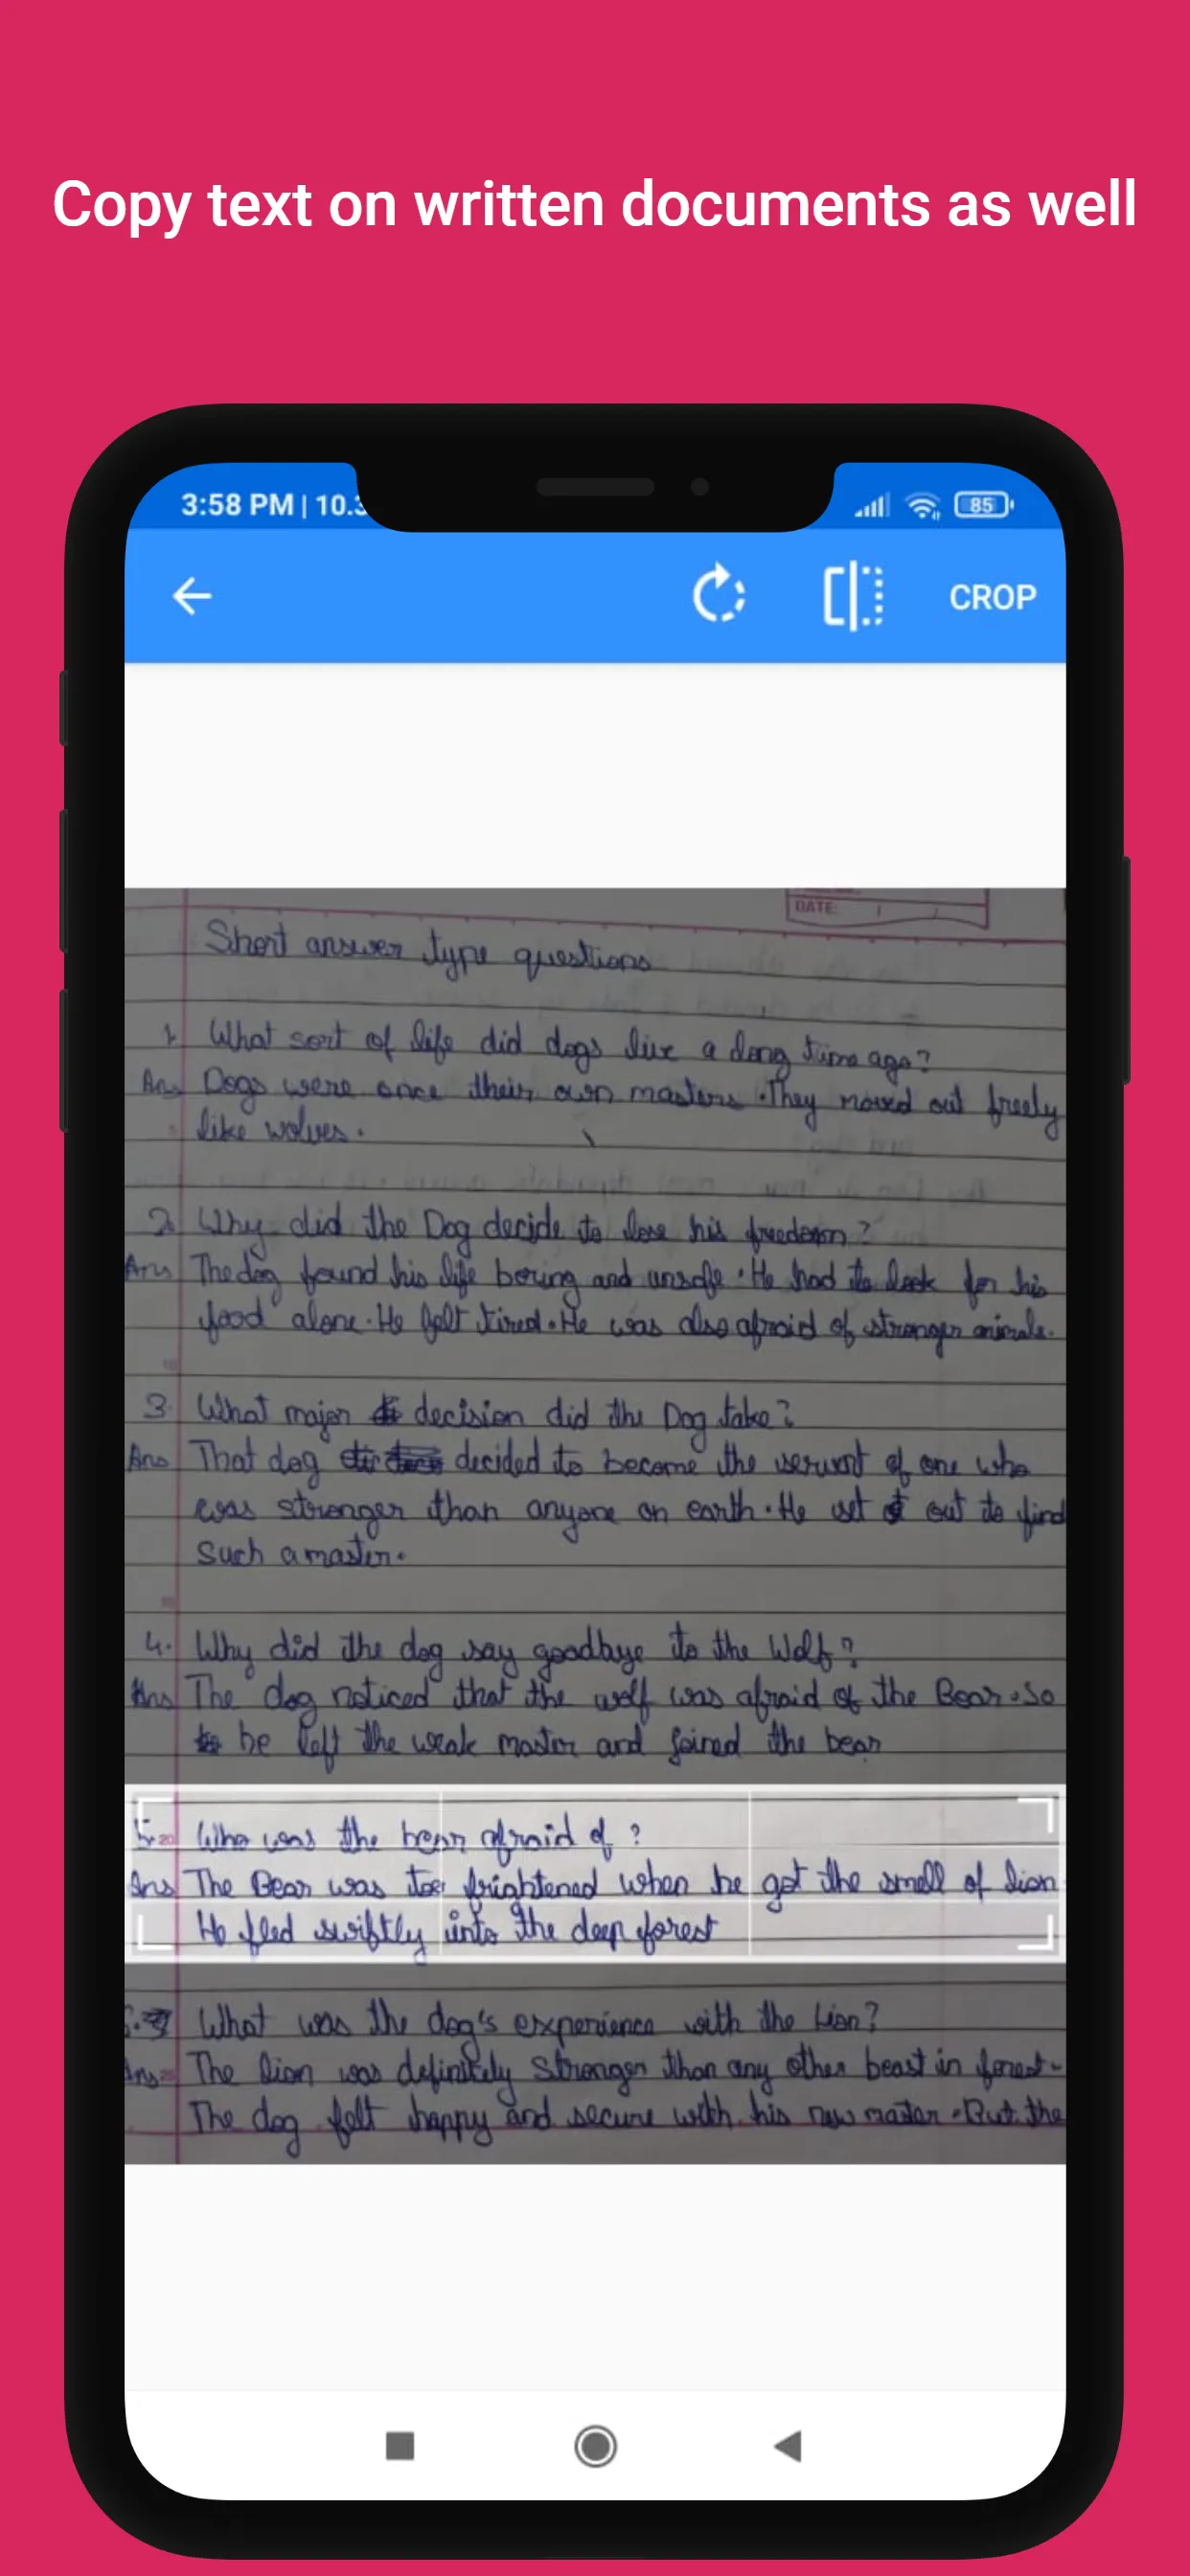 Copy text on written documents as well
3:58 PM | 10.3
85
CROP
DATE:
Short answer type questions
1. What sort of life did dogs live a long time ago?
Ans Dogs were once their own masters. They moved out freely
like wolves.
2. Why did the Dog decide to lose his freedom?
Ans The dog found his life boring and unsafe. He had to look for his
food alone. He felt tired. He was also afraid of stronger animals.
10
3. What major decision did the Dog take?
Ans That dog decided to become the servent of one who
was stronger than anyone on earth. He set out to find
Such a master.
15
4. Why did the dog say goodbye to the Wolf?
Ans The dog noticed that the wolf was afraid of the Bear. So
he left the weak master and joined the bear
5. 20 Who was the bear afraid of ?
Ans The Bear was too frightened when he got the smell of lion
He fled swiftly into the deep forest
What was the dog's experience with the Lion?
Ans 25 The lion was definitely Stronger than any other beast in forest.
The dog felt happy and secure with his new master. But the